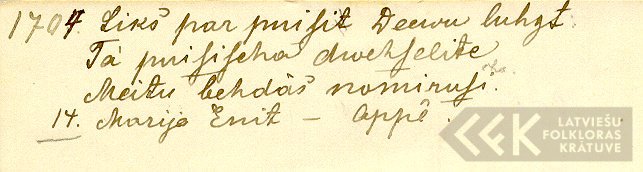 1704. Liks par puisit Deewu luhgt
Ta puisischa dwehselite
Meitu behdâs nomirusi.
14. Marija Enit – Appê.
LATVIEŠU
FOLKLORAS
KRĀTUVE